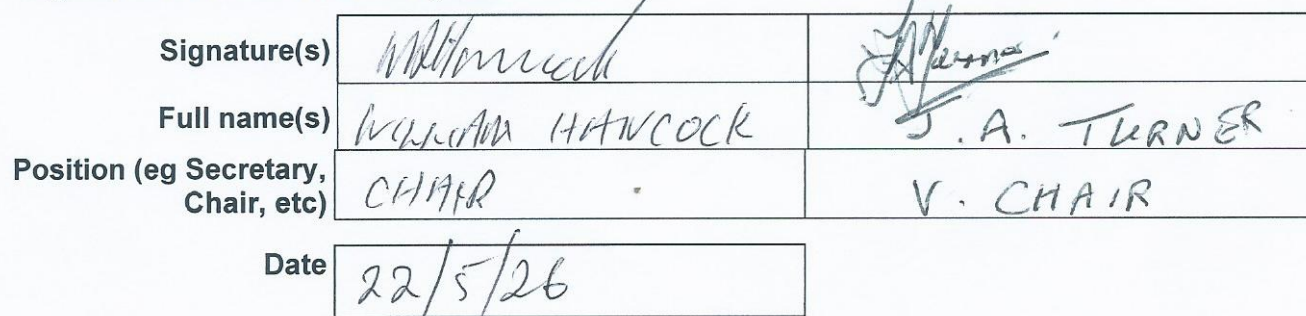 Signature(s)
Full name(s) WILLIAM HANCOCK J. A. TURNER
Position (eg Secretary,
Chair, etc) CHAIR V. CHAIR
Date 22/5/26